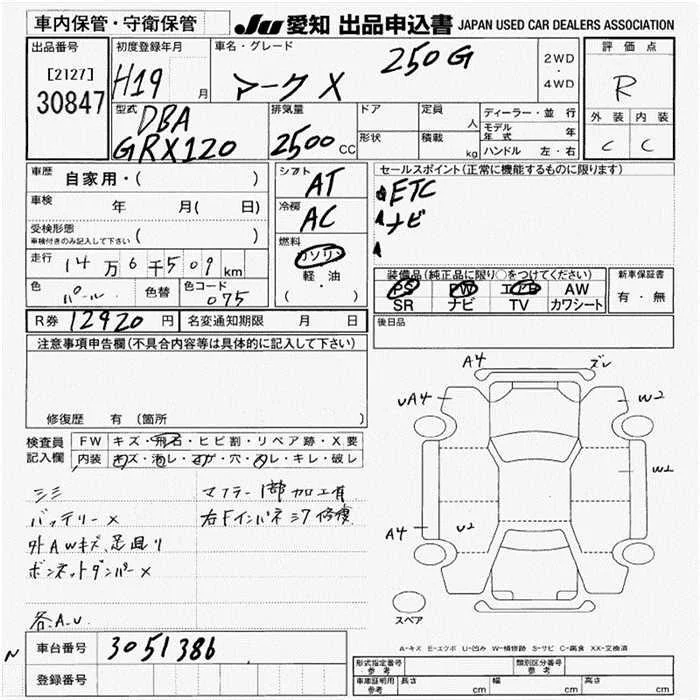 車内保管・守衛保管 JU 愛知 出品申込書 JAPAN USED CAR DEALERS ASSOCIATION
出品番号 初度登録年月 車名・グレード 評価点
[2127] H19 月 マークX 250G 2WD・4WD R
30847 型式 排気量 ドア 定員 人 ディーラー・並行 外装 内装
DBA モデル年式 年
GRX120 2500 CC 形状 積載 kg ハンドル 左・右 C C
車歴 自家用・( ) シフト AT セールスポイント(正常に機能するものに限ります)
車検 年 月( 日) 冷房 AC ETC
ナビ
受検形態 ( )
車検付きのみ記入して下さい
燃料 ガソリン 軽・油 ( )
走行 14万6千509km 装備品(純正品に限り○をつけてください) 新車保証書
色 パール 色替 色コード 075 PS PW エアB AW 有・無
SR ナビ TV カワシート
R券 12920 円 名変通知期限 月 日 後日品
注意事項申告欄(不具合内容等は具体的に記入して下さい)
修復歴 有 (箇所 )
検査員 FW キズ・飛石・ヒビ割・リペア跡・X要
記入欄 内装 キズ・汚レ・コゲ・穴・スレ・キレ・破レ
シミ マフラー1部加工有
バッテリーX 右Fインパネミワ修復
外AWキズ、足廻り
ボンネットダンパーX
各A.U.
A4 ズレ
UA4 W2
W2
A4 U2
スペア
A-キズ E-エクボ U-凹み W-補修跡 S-サビ C-腐食 XX-交換済
N 車台番号 3051386
登録番号
形式指定番号 参考 類別区分番号 参考
車庫証明用 参考 長さ cm 幅 cm 高さ cm